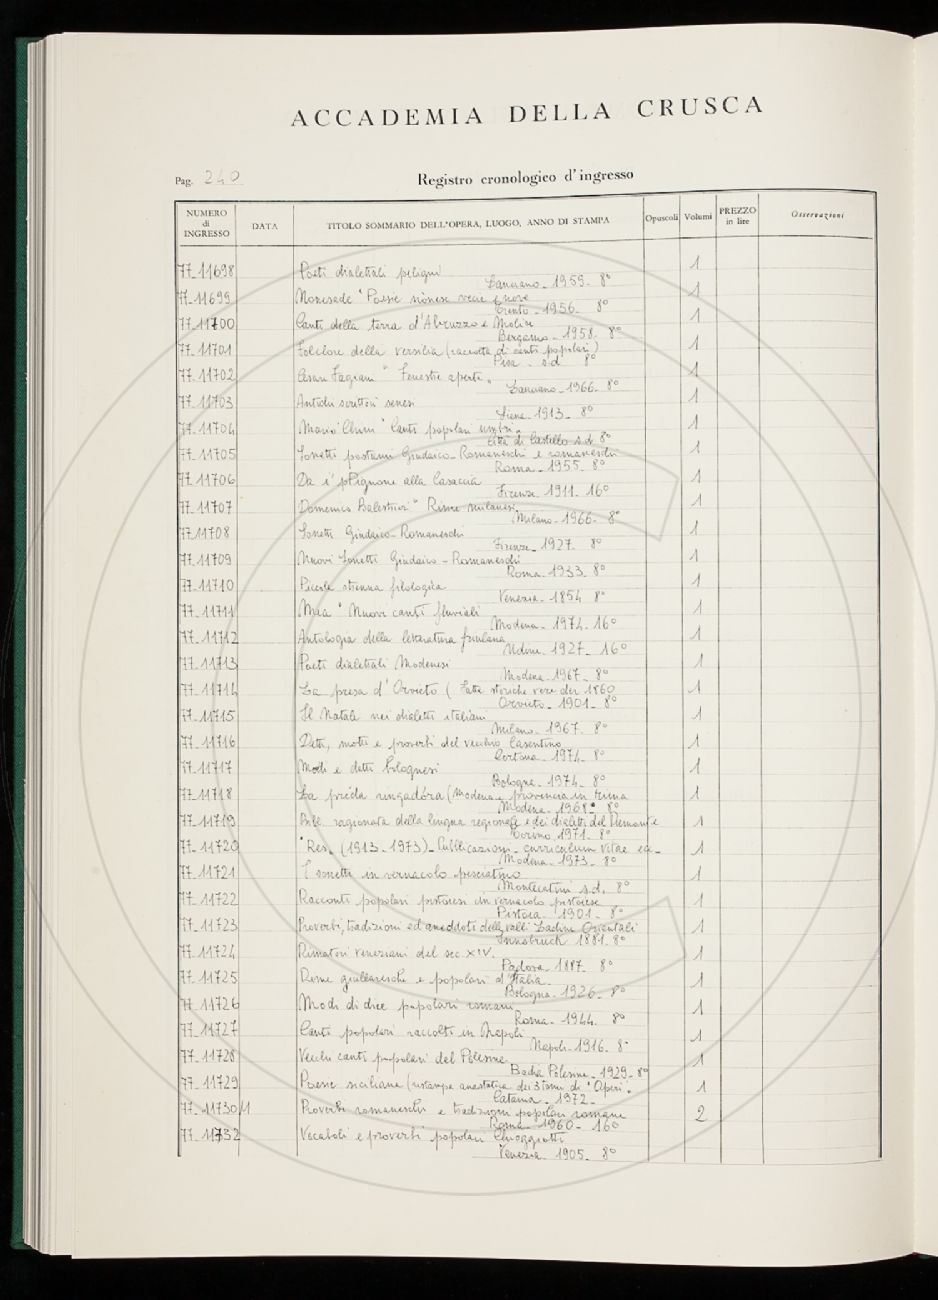 ACCADEMIA DELLA CRUSCA
Pag. 240
Registro cronologico d'ingresso
NUMERO di INGRESSO DATA TITOLO SOMMARIO DELL'OPERA, LUOGO, ANNO DI STAMPA Opuscoli Volumi PREZZO in lire Osservazioni
77-11698 Poeti dialettali peligni 1
Lanciano - 1959 - 8°
77-11699 "Poesie nònese vecie e nove 1
Trento - 1956 - 8°
77-11700 Canti della terra d'Abruzzo e Molise 1
Bergamo - 1958 - 8°
77-11701 Folclore della Versilia (raccolta di canti popolari) 1
Pisa - s.d. 8°
77-11702 Cesare Fagiani " Fenestre aperte " 1
Lanciano - 1966 - 8°
77-11703 Antichi scrittori senesi 1
Siena - 1913 - 8°
77-11704 Mario Chini " Canti popolari umbri " 1
Città di Castello s.d. 8°
77-11705 Sonetti postumi Giudaico-Romaneschi e romaneschi 1
Roma - 1955 - 8°
77-11706 Da i' pPignone alla Casaccia 1
Firenze - 1911 - 16°
77-11707 Domenico Balestrieri " Rime milanesi 1
Milano - 1966 - 8°
77-11708 Sonetti Giudaico-Romaneschi 1
Firenze - 1927 - 8°
77-11709 Nuovi Sonetti Giudaico-Romaneschi 1
Roma - 1933 - 8°
77-11710 Piccola strenna filologica 1
Venezia - 1854 8°
77-11711 " Nuovi canti fluviali 1
Modena - 1974 - 16°
77-11712 Antologia della letteratura friulana 1
Udine - 1927 - 16°
77-11713 Poeti dialettali Modenesi 1
Modena - 1967 - 8°
77-11714 La presa d'Orvieto ( Fatte storiche vere der 1860 1
Orvieto - 1901 - 8°
77-11715 Il Natale nei dialetti italiani 1
Milano - 1967 - 8°
77-11716 Detti, motti e proverbi del vecchio Casentino 1
Cortona - 1974 - 8°
77-11717 Modi e detti bolognesi 1
Bologna - 1974 - 8°
77-11718 La préda ringadóra (Modena e provincia in rima 1
Modena - 1968 - 8°
77-11719 Bibl. ragionata della lingua regionale e dei dialetti del Piemonte 1
Torino 1971 - 8°
77-11720 (1913-1973) - Pubblicazioni - curriculum vitae ec - 1
Modena - 1973 - 8°
77-11721 sonetti in vernacolo pesciatino 1
Montecatini s.d. 8°
77-11722 Racconti popolari pistoiesi in vernacolo pistoiese 1
Pistoia - 1901 - 8°
77-11723 Proverbi, tradizioni ed aneddoti delle valli Ladine Orientali 1
Innsbruck 1881 - 8°
77-11724 Rimatori veneziani del sec. XIV. 1
Padova - 1887 - 8°
77-11725 Rime giullaresche e popolari d'Italia 1
Bologna - 1926 - 8°
77-11726 Modi di dire popolari romani 1
Roma - 1944 - 8°
77-11727 Canti popolari raccolti in Napoli 1
Napoli - 1916 - 8°
77-11728 Vecchi canti popolari del Polesine 1
Badia Polesine - 1929 - 8°
77-11729 Poesie siciliane (ristampa anastatica dei 3 tomi di "Opiri". 1
Catania - 1972 -
77-11730/1 Proverbi romaneschi e tradizioni popolari romane 2
Roma - 1960 - 16°
77-11732 Vocaboli e proverbi popolari chioggiotti
Venezia - 1905 - 8°